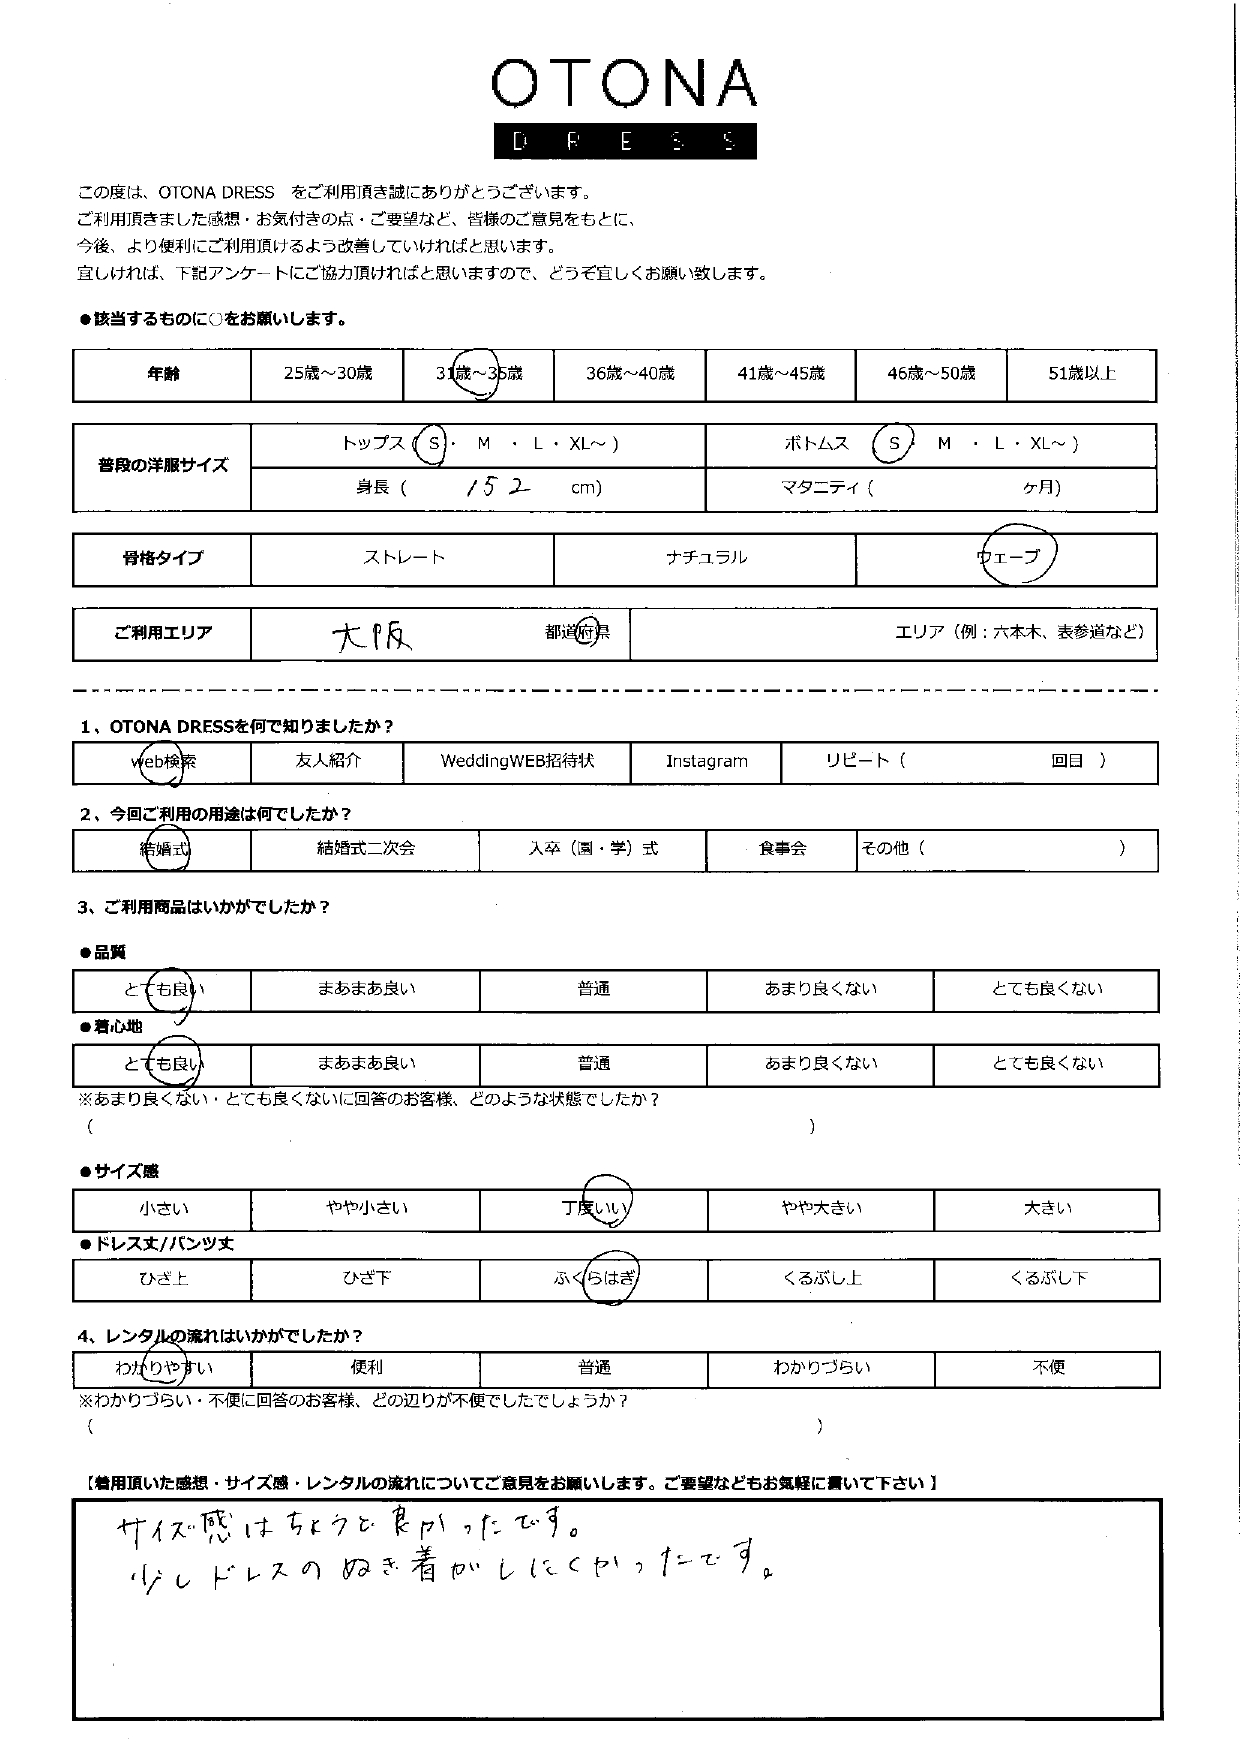 OTONA
DRESS
この度は、OTONA DRESS をご利用頂き誠にありがとうございます。
ご利用頂きました感想・お気付きの点・ご要望など、皆様のご意見をもとに、
今後、より便利にご利用頂けるよう改善していければと思います。
宜しければ、下記アンケートにご協力頂ければと思いますので、どうぞ宜しくお願い致します。
●該当するものに○をお願いします。
年齢 25歳～30歳 31歳～35歳 36歳～40歳 41歳～45歳 46歳～50歳 51歳以上
普段の洋服サイズ
トップス ( S ・ M ・ L ・ XL～ ) ボトムス ( S ・ M ・ L ・ XL～ )
身長 ( 152 cm) マタニティ ( ヶ月)
骨格タイプ ストレート ナチュラル ウェーブ
ご利用エリア 大阪 都道府県 エリア（例：六本木、表参道など）
1、OTONA DRESSを何で知りましたか？
web検索 友人紹介 WeddingWEB招待状 Instagram リピート（ 回目 ）
2、今回ご利用の用途は何でしたか？
結婚式 結婚式二次会 入卒（園・学）式 食事会 その他（ ）
3、ご利用商品はいかがでしたか？
●品質
とても良い まあまあ良い 普通 あまり良くない とても良くない
●着心地
とても良い まあまあ良い 普通 あまり良くない とても良くない
※あまり良くない・とても良くないに回答のお客様、どのような状態でしたか？
（ ）
●サイズ感
小さい やや小さい 丁度いい やや大きい 大きい
●ドレス丈/パンツ丈
ひざ上 ひざ下 ふくらはぎ くるぶし上 くるぶし下
4、レンタルの流れはいかがでしたか？
わかりやすい 便利 普通 わかりづらい 不便
※わかりづらい・不便に回答のお客様、どの辺りが不便でしたでしょうか？
（ ）
【着用頂いた感想・サイズ感・レンタルの流れについてご意見をお願いします。ご要望などもお気軽に書いて下さい】
サイズ感はちょうど良かったです。
少しドレスのぬき着がしにくかったです。